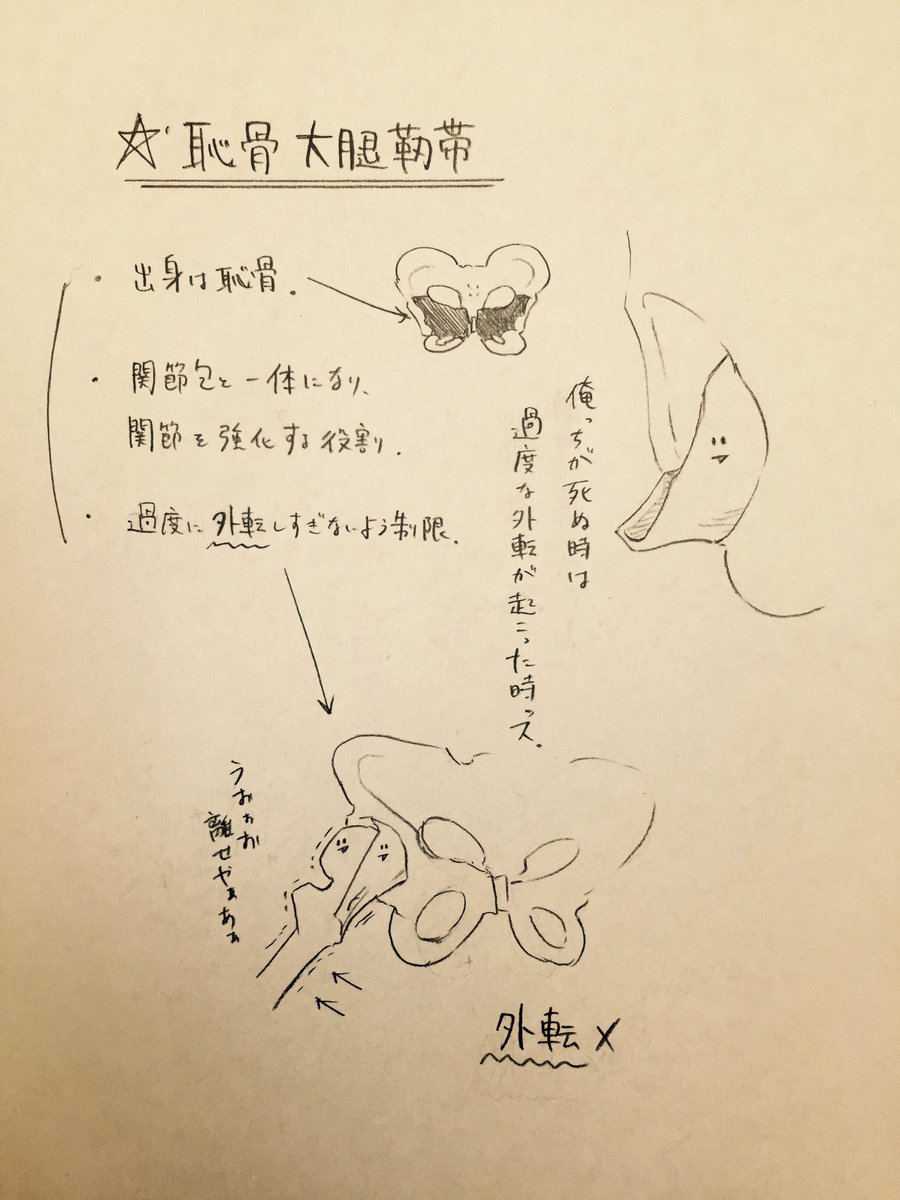 ☆ 恥骨大腿靭帯
・ 出身は恥骨.
・ 関節包と一体になり、
関節を強化する役割.
・ 過度に外転しすぎないよう制限.
俺っちが死ぬ時は
過度な外転が起こった時ッス.
うおぉお
離せやぁあぁ
外転 X